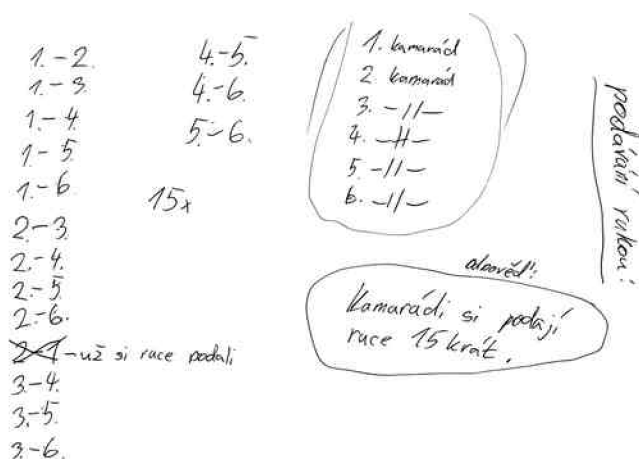 1.-2.
1.-3
1.-4
1.-5.
1.-6
2.-3.
2.-4.
2.-5.
2.-6.
2-1 -už si ruce podali
3.-4.
3.-5.
3.-6.
4.-5.
4.-6.
5.-6.
15x
1. kamarád
2. kamarád
3. -//-
4. -//-
5. -//-
6. -//-
podávání rukou!
odpověď:
Kamarádi si podají
ruce 15 krát.